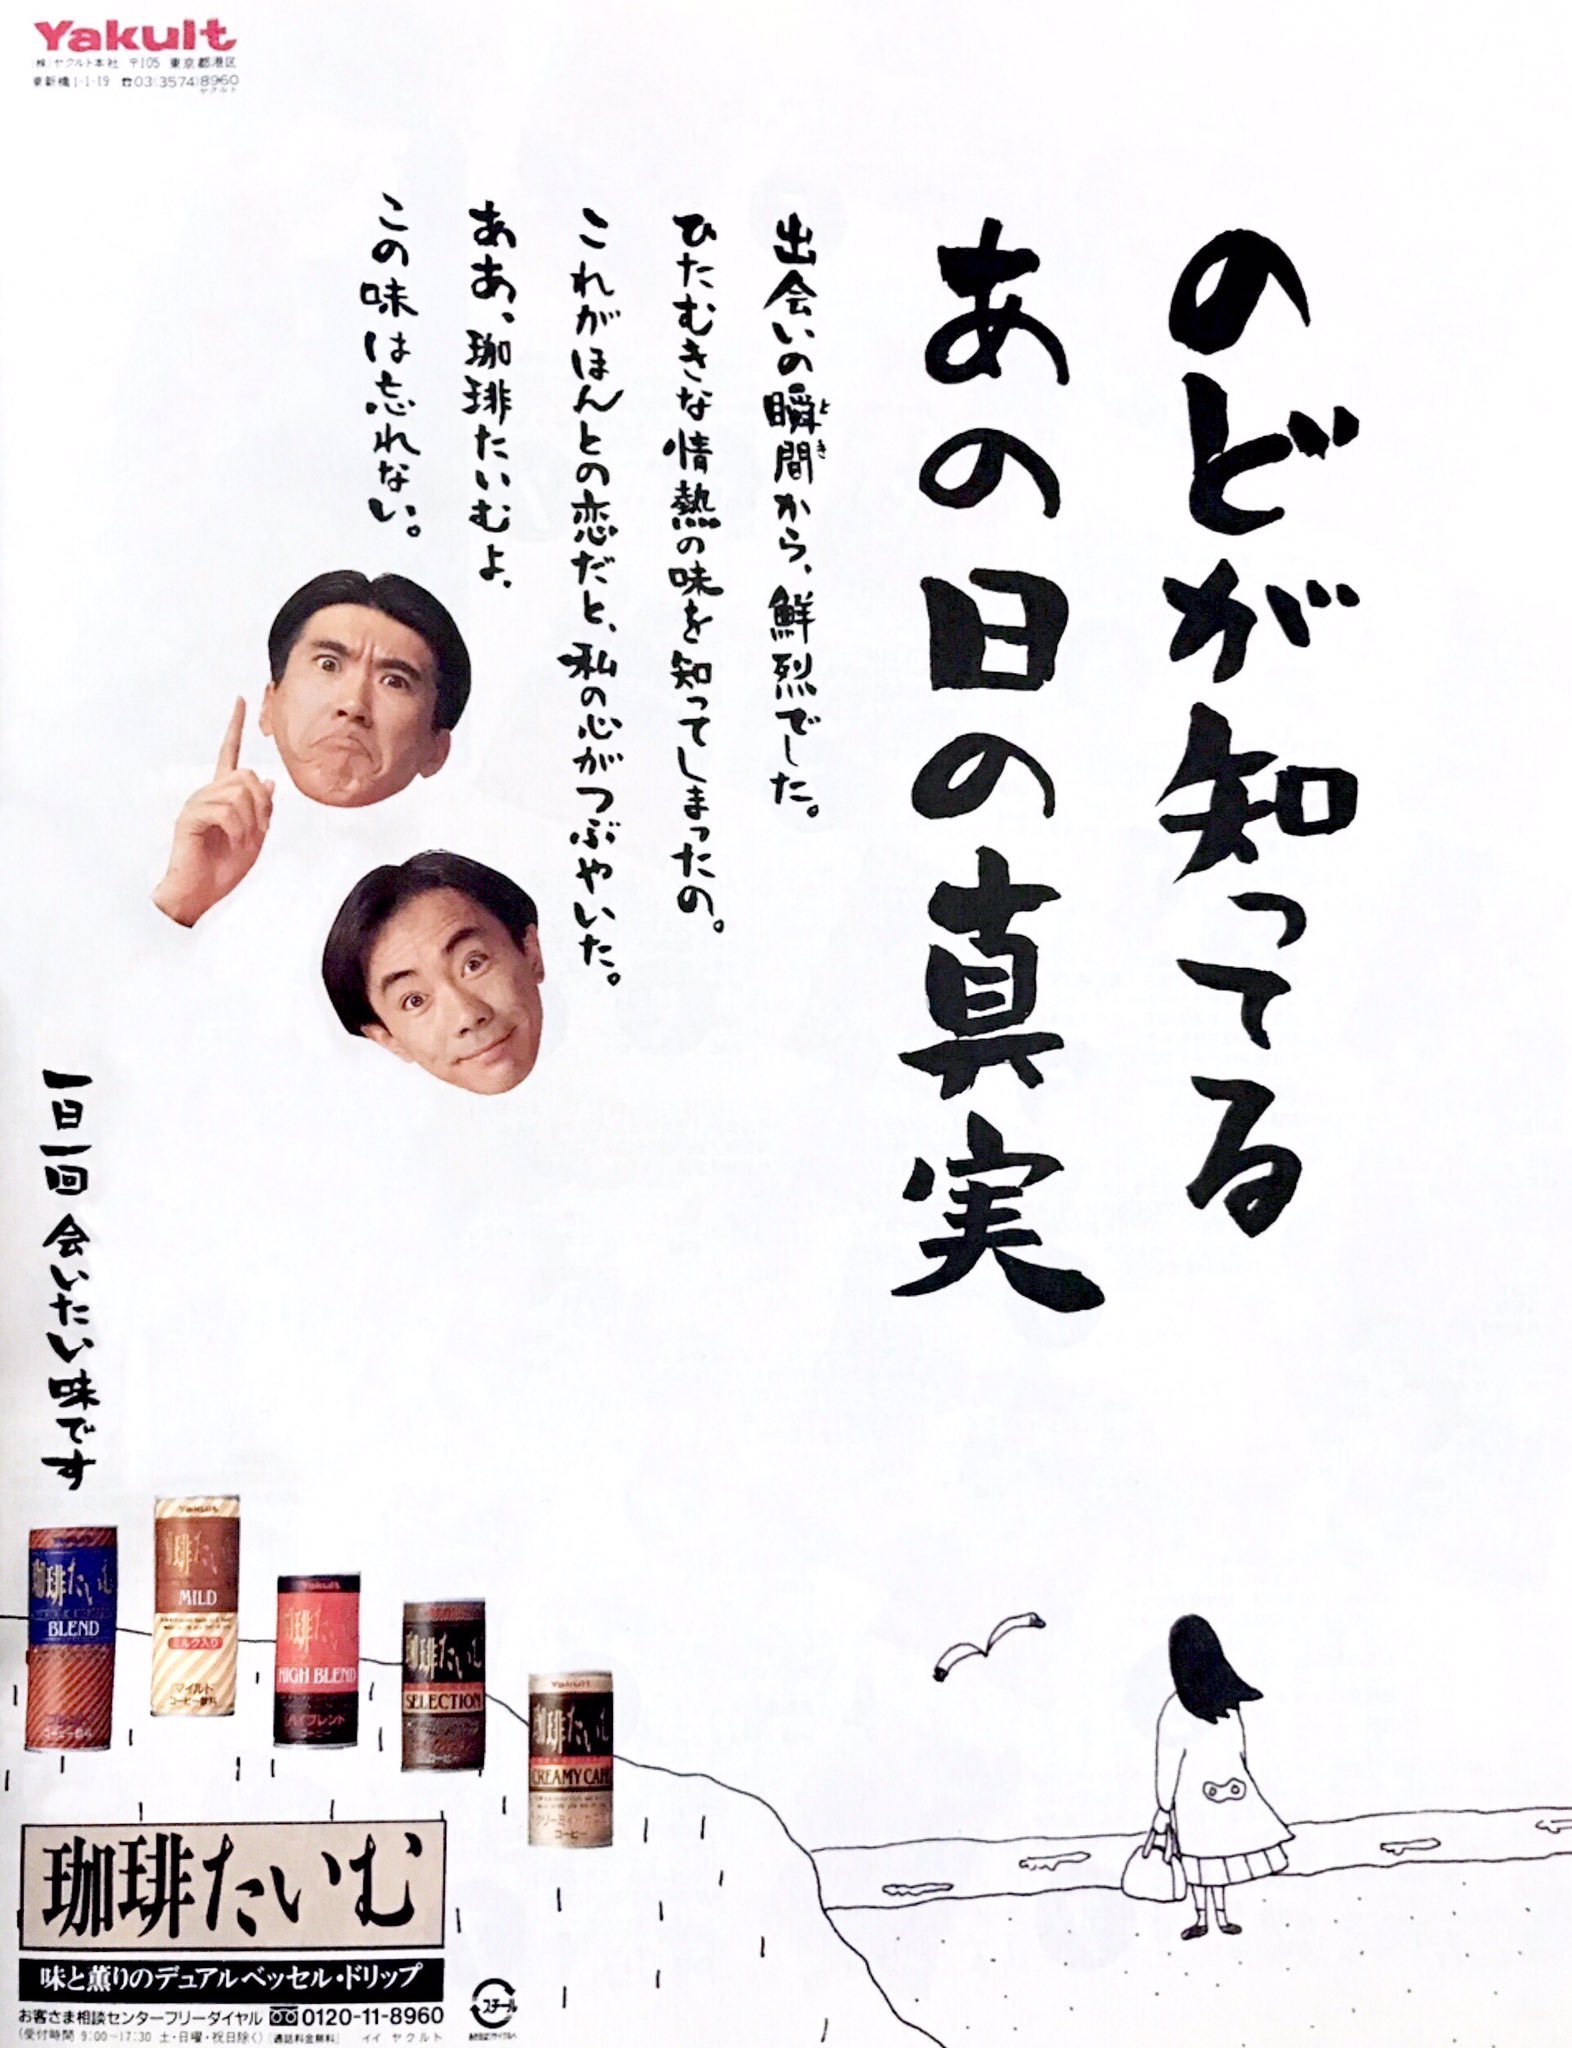 Yakult
(株)ヤクルト本社 〒105 東京都港区
東新橋1-1-19 ☎03(3574)8960
ヤクルト
のどが知ってる
あの日の真実
出会いの瞬間から、鮮烈でした。
とき
ひたむきな情熱の味を知ってしまったの。
これがほんとの恋だと、私の心がつぶやいた。
ああ、珈琲たいむよ、
この味は忘れない。
一日一回 会いたい味です
珈琲たいむ
BLEND
ブレンド
コーヒー飲料
Yakult
珈琲たいむ
MILD
ミルク入り
マイルド
コーヒー飲料
Yakult
珈琲たいむ
HIGH BLEND
ハイブレンド
コーヒー
珈琲たいむ
SELECTION
コーヒー
Yakult
珈琲たいむ
CREAMY CAFE
コーヒー
珈琲たいむ
味と薫りのデュアルベッセル・ドリップ
お客さま相談センターフリーダイヤル 0120-11-8960
(受付時間 9:00〜17:30 土・日曜・祝日除く) [通話料金無料] イイ ヤクルト
スチール